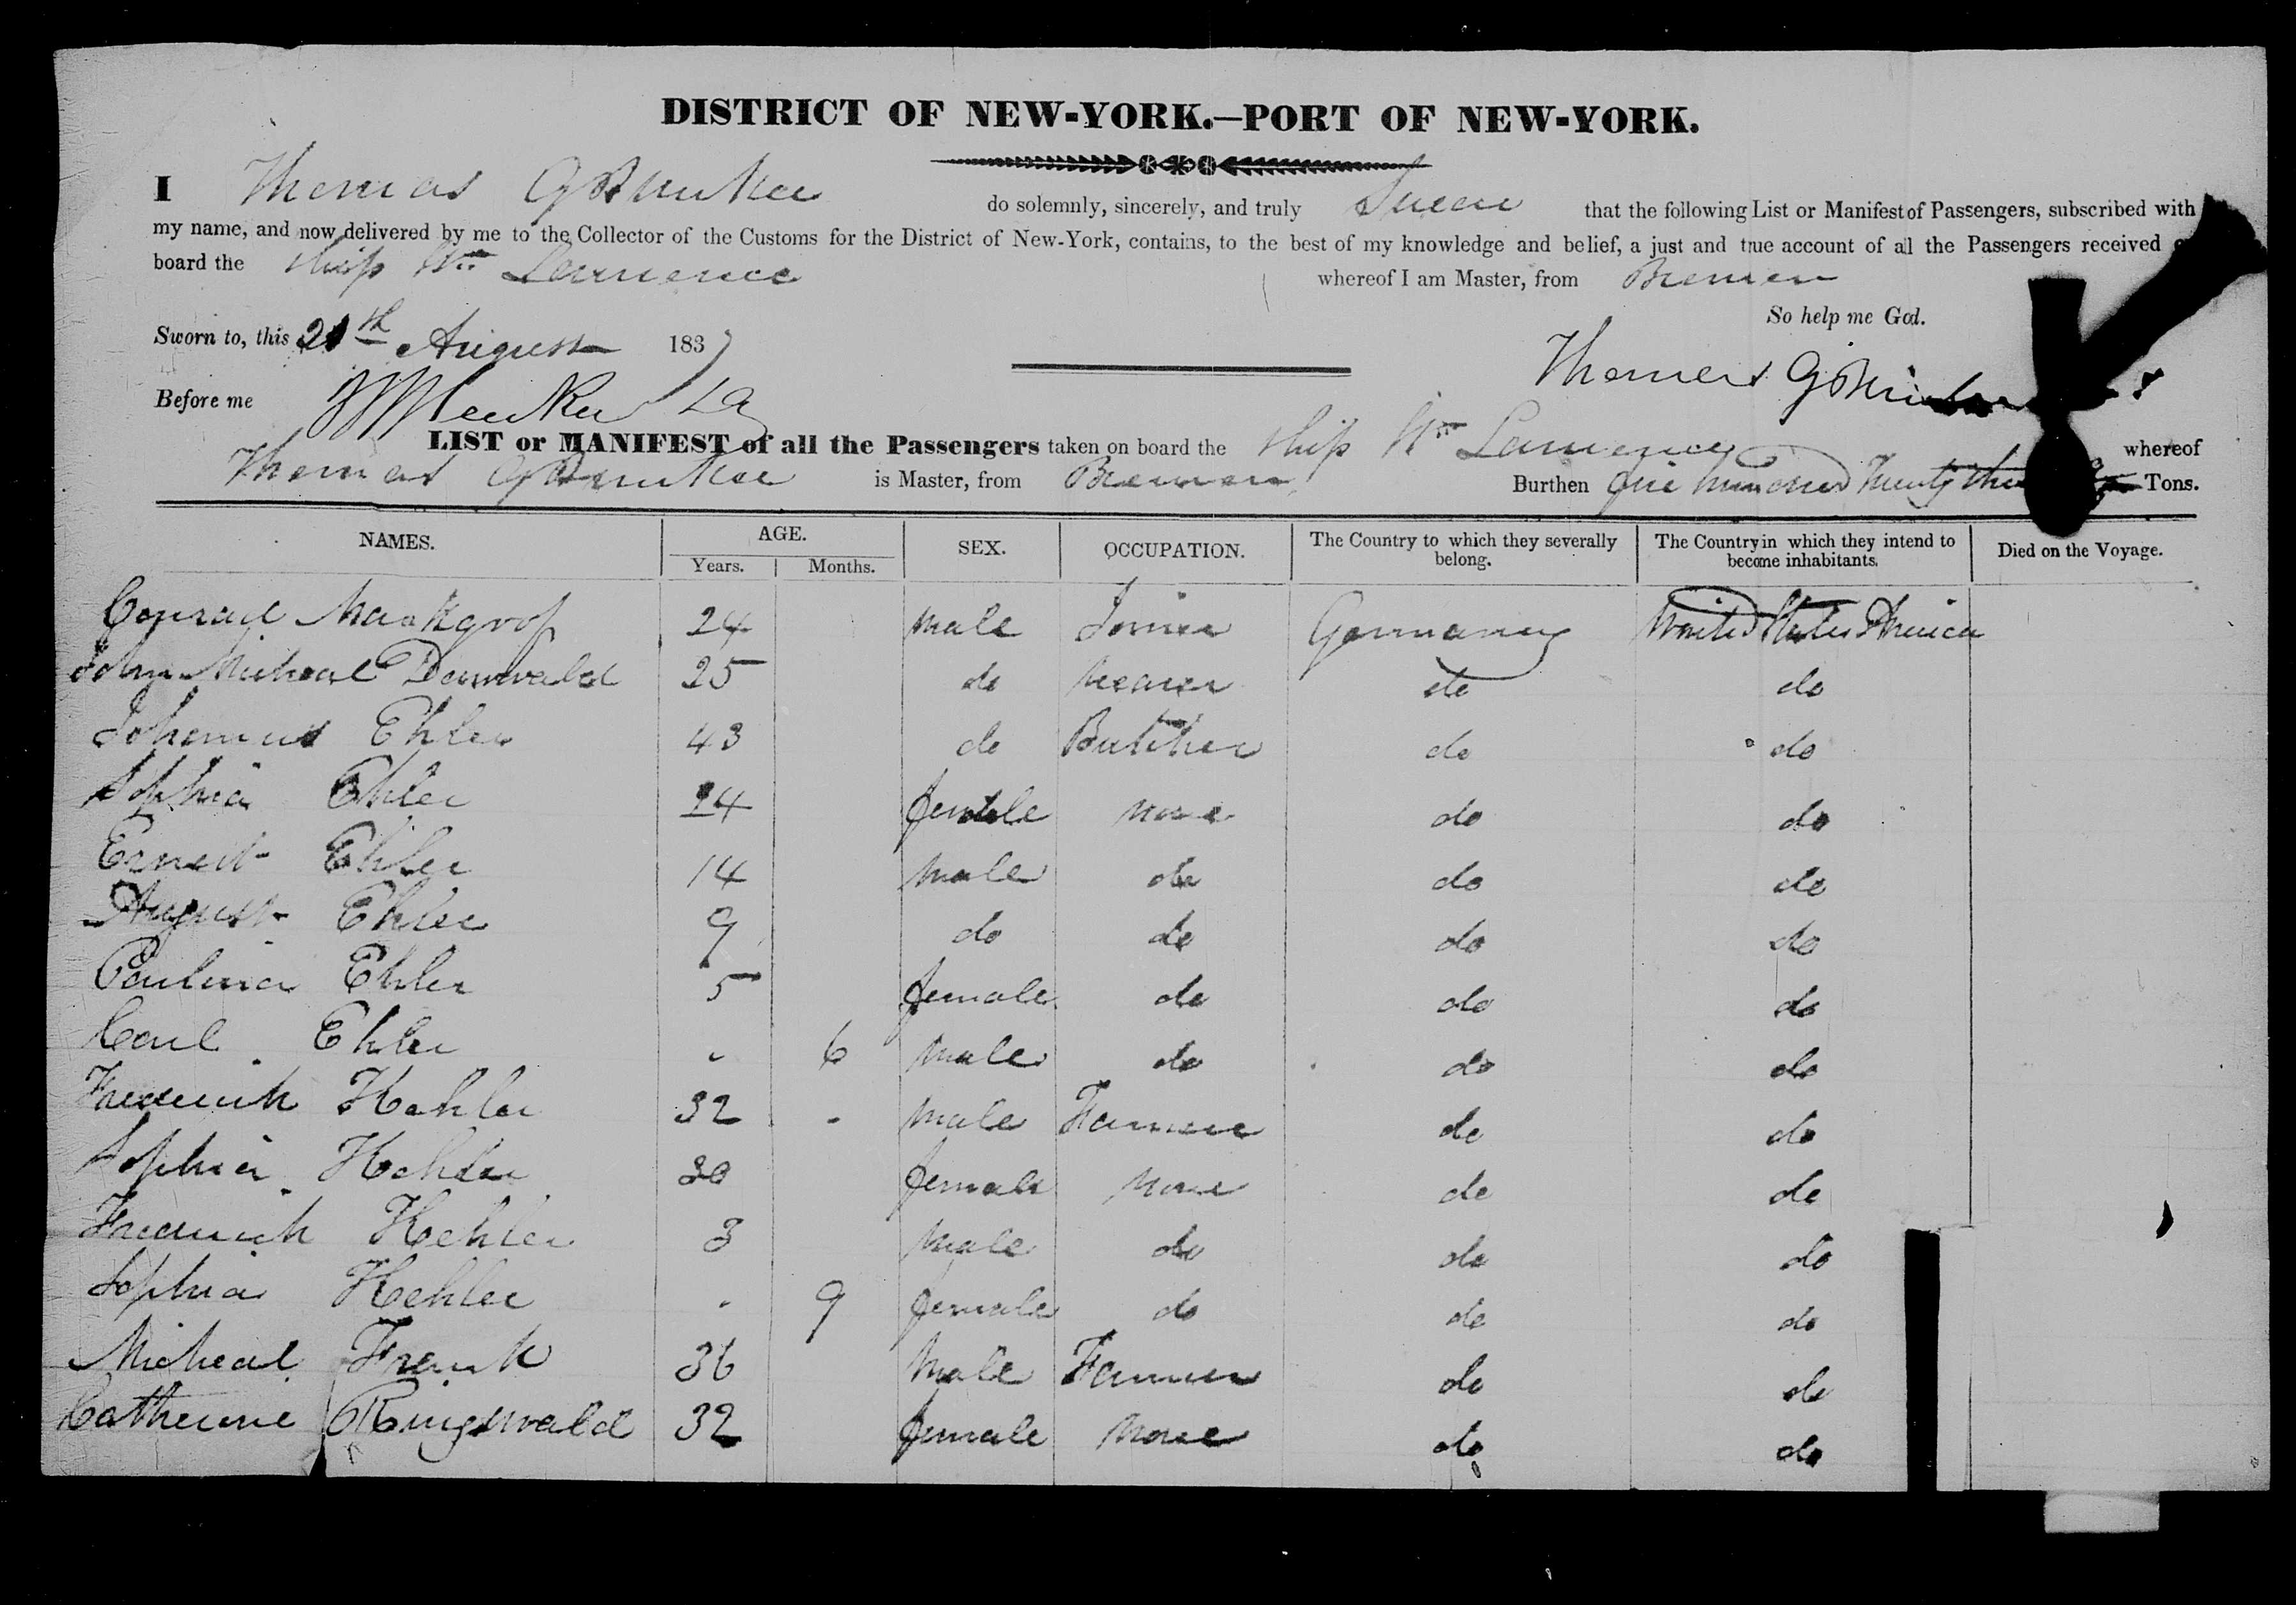 DISTRICT OF NEW-YORK.—PORT OF NEW-YORK.
I Thomas G Bunker do solemnly, sincerely, and truly Swear that the following List or Manifest of Passengers, subscribed with
my name, and now delivered by me to the Collector of the Customs for the District of New-York, contains, to the best of my knowledge and belief, a just and true account of all the Passengers received
board the Ship Wm Lawrence whereof I am Master, from Bremen
So help me God.
Sworn to, this 21th August 1837
Thomas G Bunker
Before me
LIST or MANIFEST of all the Passengers taken on board the Ship Wm Lawrence whereof
Thomas G Bunker is Master, from Bremen Burthen hundred Twenty Tons.
NAMES. AGE. SEX. OCCUPATION. The Country to which they severally belong. The Country in which they intend to become inhabitants. Died on the Voyage.
Years. Months.
Conrad Markgrof 24 male Joiner Germany United States America
John Micheal Dannwald 25 do Weaver do do
Johannus Ehler 43 do Butcher do do
Sophia Ehler 14 female none do do
Ernest Ehler 14 male do do do
August Ehler 9 do do do do
Paulina Ehler 5 female do do do
Carl Ehler - 6 male do do do
Frederick Kehler 32 - male Farmer do do
Sophia Kehler 30 female none do do
Frederick Kehler 3 male do do do
Sophia Kehler - 9 female do do do
Micheal Frank 36 male Farmer do do
Catherine Ringwald 32 female none do do